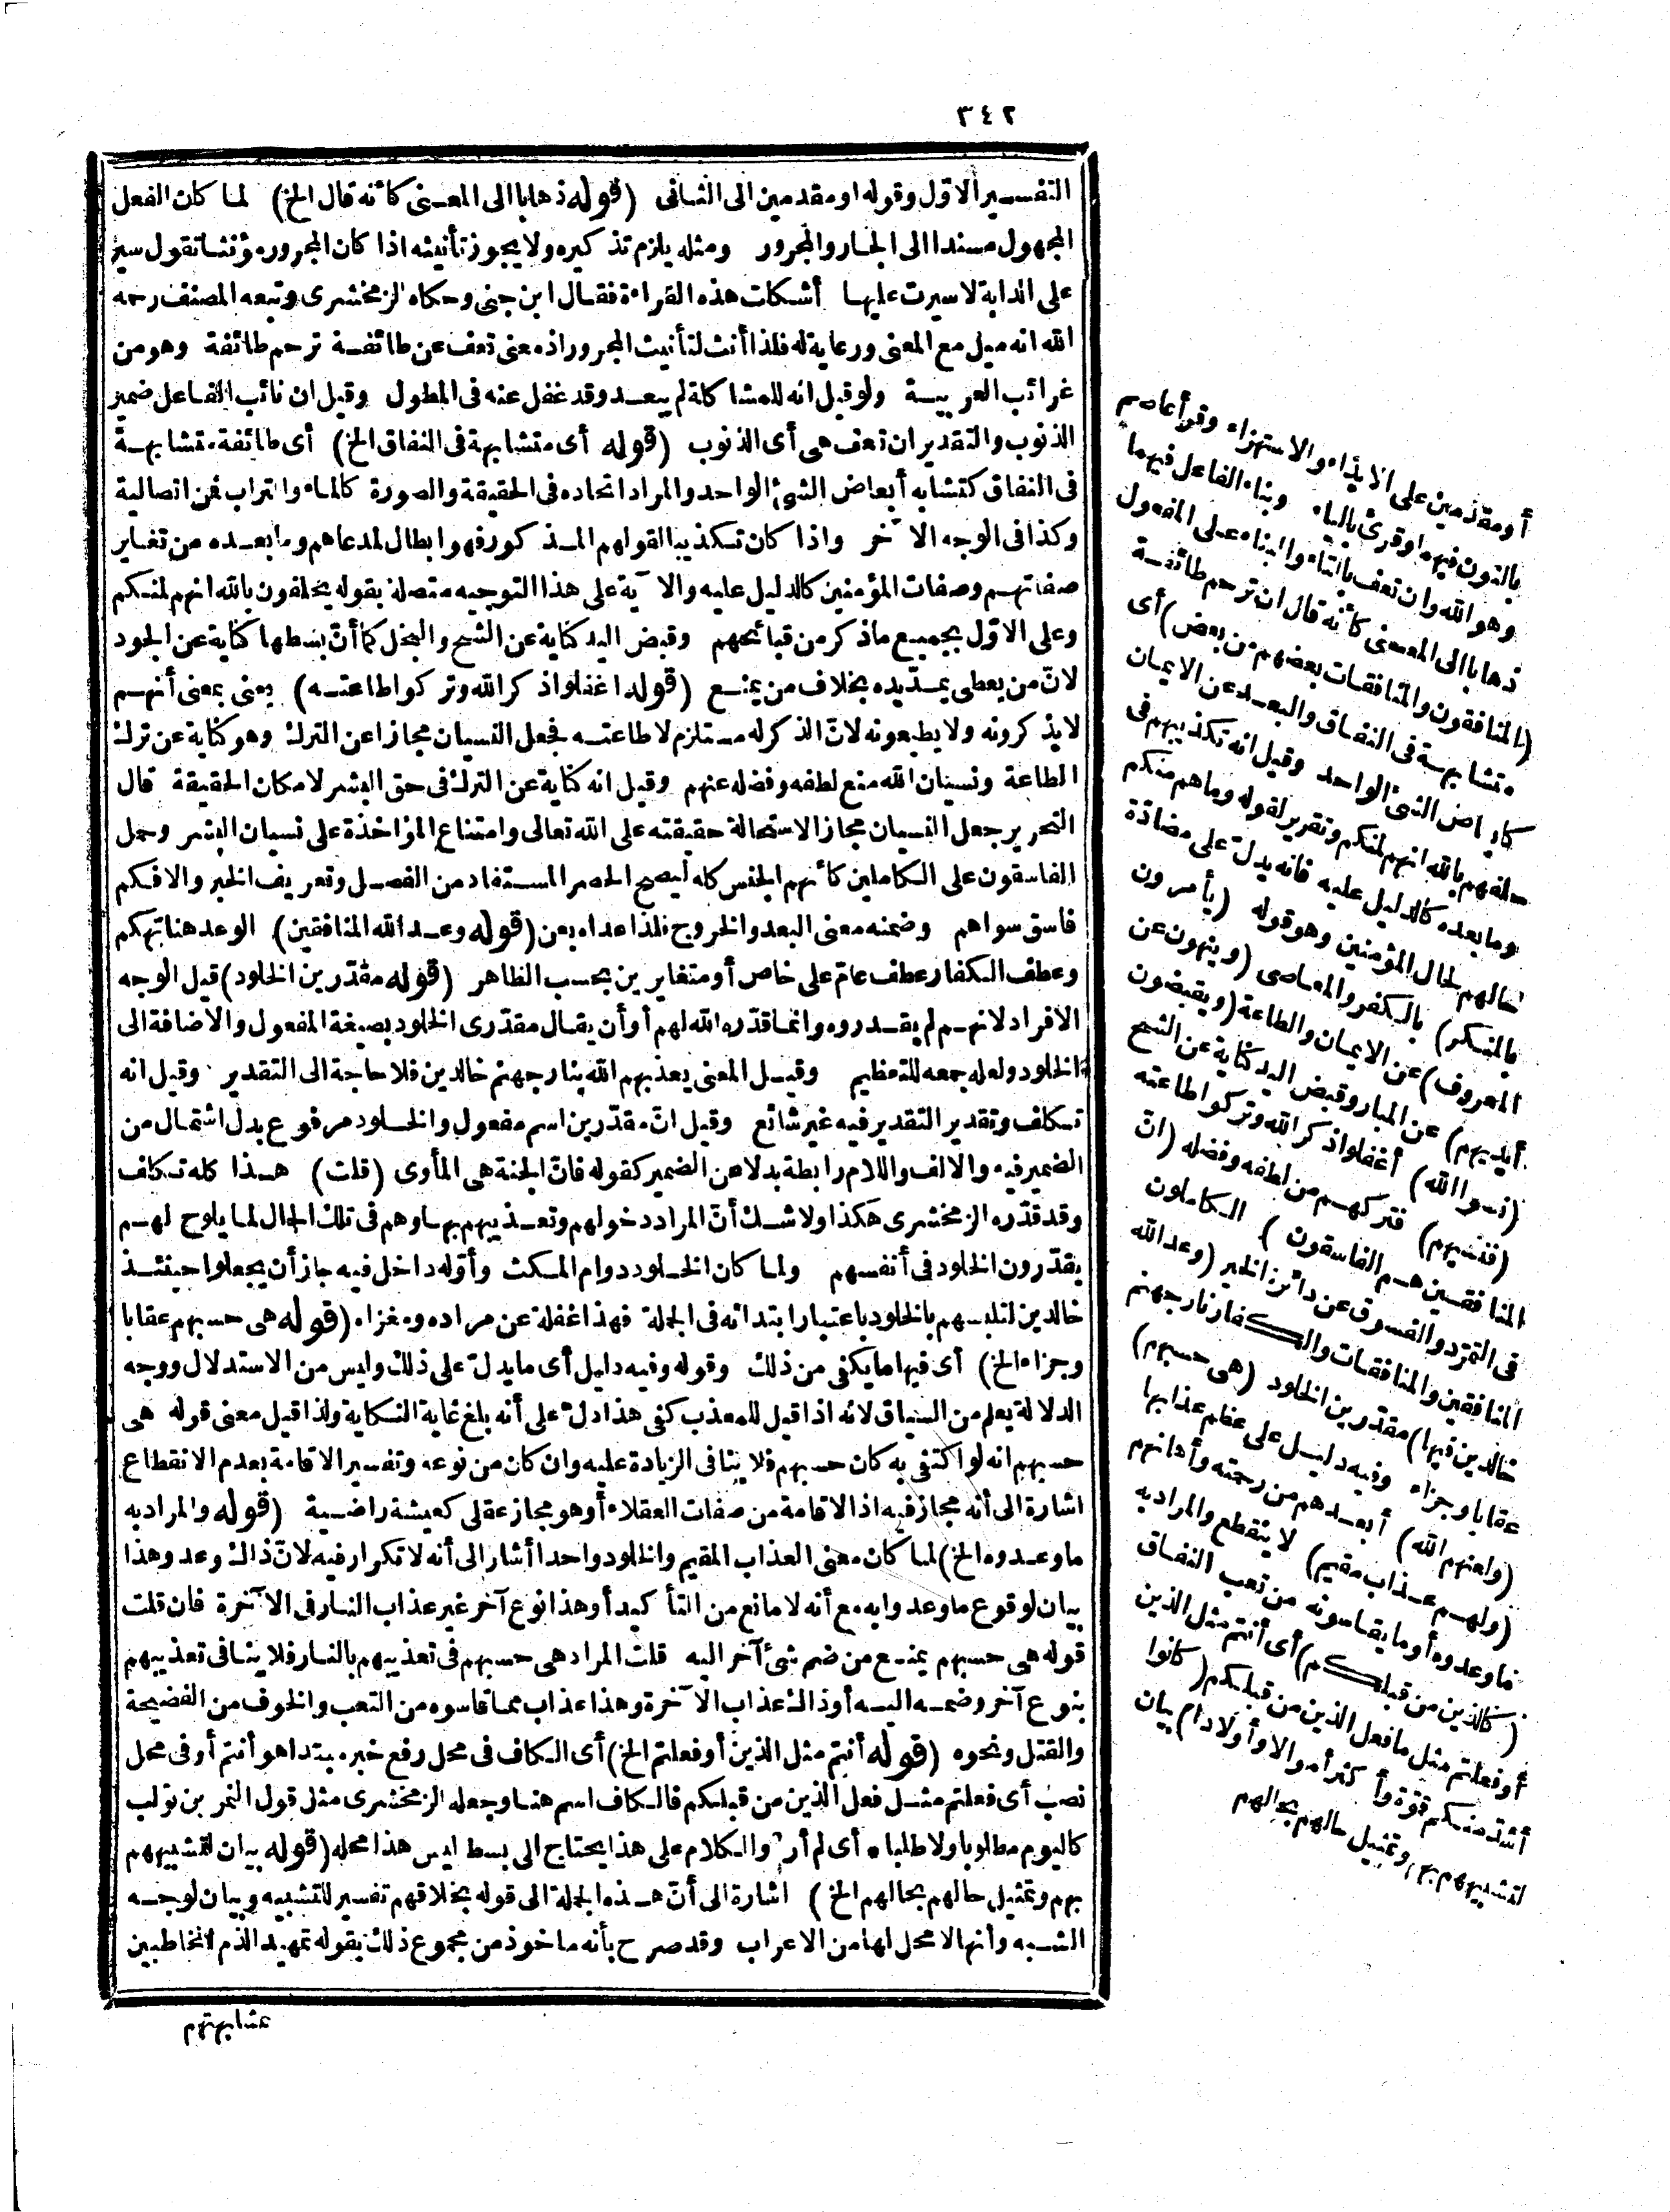 ٣٤٢
التفسير الاوّل وقوله او مقدمين الى الثانى (قوله ذهابا الى المعنى كأنه قال الخ) لما كان الفعل
المجهول مسندا الى الجار والمجرور ومثله يلزم تذكيره ولا يجوز تأنيثه اذا كان المجرور مؤنثا تقول سير
على الدابة لا سيرت عليها أشكلت هذه القراءة فقال ابن جنى وحكاه الزمخشرى وتبعه المصنف رحمه
الله انه ميل مع المعنى ورعاية له فلذا أنث لتأنيث المجرور اذ معنى تعف عن طائفة ترحم طائفة وهو من
غرائب العربية ولو قيل انه للمشاكلة لم يبعد وقد غفل عنه فى المطول وقيل ان نائب الفاعل ضمير
الذنوب والتقدير ان تعف هى أى الذنوب (قوله أى متشابهة فى النفاق الخ) أى طائفة متشابهة
فى النفاق كتشابه أبعاض الشئ الواحد والمراد اتحاده فى الحقيقة والصورة كالماء والتراب فمن اتصالية
وكذا فى الوجه الآخر واذا كان تكذيبا لقولهم المذكور فهو ابطال لمدعاهم وما بعده من تغاير
صفاتهم وصفات المؤمنين كالدليل عليه والآية على هذا التوجيه متصلة بقوله يحلفون بالله انهم لمنكم
وعلى الاوّل بجميع ماذكر من قبائحهم وقبض اليد كناية عن الشح والبخل كما أنّ بسطها كناية عن الجود
لانّ من يعطى يمدّ يده بخلاف من يمنع (قوله اغفلوا ذكر الله وتركوا طاعته) يعنى بمعنى أنهم
لا يذكرونه ولا يطيعونه لانّ الذكر له مستلزم لاطاعته فجعل النسيان مجازا عن الترك وهو كناية عن ترك
الطاعة ونسيان الله منع لطفه وفضله عنهم وقيل انه كناية عن الترك فى حق البشر لامكان الحقيقة قال
النحرير جعل النسيان مجازا لاستحالة حقيقته على الله تعالى وامتناع المؤاخذة على نسيان البشر وحمل
الفاسقون على الكاملين كأنهم الجنس كله ليصح الحصر المستفاد من الفصل وتعريف الخبر والا فكم
فاسق سواهم وضمنه معنى البعد والخروج فلذا عداه بعن (قوله وعد الله المنافقين) الوعد هنا تهكم
وعطف الكفار عطف عامّ على خاص أو متغايرين بحسب الظاهر (قوله مقدّرين الخلود) قيل الوجه
الافراد لانهم لم يقدروه وانما قدّره الله لهم أو أن يقال مقدّرى الخلود بصيغة المفعول والاضافة الى
الخلود ولعله جمعه للتعظيم وقيل المعنى يعذبهم الله بنار جهنم خالدين فلا حاجة الى التقدير وقيل انه
تكلف وتقدير التقدير فيه غير شائع وقيل انّ مقدّرين اسم مفعول والخلود مرفوع بدل اشتمال من
الضمير فيه والالف واللام رابطة بدلا عن الضمير كقوله فانّ الجنة هى المأوى (قلت) هذا كله تكلف
وقد قدّره الزمخشرى هكذا ولا شك أنّ المراد دخولهم وتعذيبهم بها وهم فى تلك الحال لما يلوح لهم
يقدّرون الخلود فى أنفسهم ولما كان الخلود دوام المكث وأوّله داخل فيه جاز أن يجعلوا حينئذ
خالدين لتلبسهم بالخلود باعتبار ابتدائه فى الجملة فهذا غفلة عن مراده ومغزاه (قوله هى حسبهم عقابا
وجزاء الخ) أى فيها ما يكفى من ذلك وقوله وفيه دليل أى ما يدلّ على ذلك وليس من الاستدلال ووجه
الدلالة يعلم من السياق لانه اذا قيل للمعذب كفى هذا دلّ على أنه بلغ غاية النكاية ولذا قيل معنى قوله هى
حسبهم انه لو اكتفى به كان حسبهم فلا ينافى الزيادة عليه وان كان من نوعه وتفسير الاقامة بعدم الانقطاع
اشارة الى أنه مجاز فيه اذ الاقامة من صفات العقلاء أو هو مجاز عقلى كعيشة راضية (قوله والمراد به
ما وعدوه الخ) لما كان معنى العذاب المقيم والخلود واحدا أشار الى أنه لا تكرار فيه لانّ ذاك وعد وهذا
بيان لوقوع ما وعدوا به مع أنه لا مانع من التأكيد أو هذا نوع آخر غير عذاب النار فى الآخرة فان قلت
قوله هى حسبهم يمنع من ضم شئ آخر اليه قلت المراد هى حسبهم فى تعذيبهم بالنار فلا ينافى تعذيبهم
بنوع آخر وضمه اليه أو ذاك عذاب الآخرة وهذا عذاب مما قاسوه من التعب والخوف من الفضيحة
والقتل ونحوه (قوله أنتم مثل الذين أو فعلتم الخ) أى الكاف فى محل رفع خبر مبتدا هو أنتم أو فى محل
نصب أى فعلتم مثل فعل الذين من قبلكم فالكاف اسم هنا وجعله الزمخشرى مثل قول النمر بن تولب
كاليوم مطلوبا ولا طلبا * أى لم أر والكلام على هذا يحتاج الى بسط ليس هذا محله (قوله بيان لتشبيههم
بهم وتمثيل حالهم بحالهم الخ) اشارة الى أنّ هذه الجملة الى قوله بخلاقهم تفسير للتشبيه وبيان لوجه
الشبه وأنها لا محل لها من الاعراب وقد صرح بأنه ماخوذ من مجموع ذلك بقوله تمهيد الذم المخاطبين
بمشابهتهم
أو مقدمين على الايذاء والاستهزاء وقرأ عاصم
بالنون فيهما وقرئ بالياء وبناء الفاعل فيهما
وهو الله وان تعف بالتاء والبناء على المفعول
ذهابا الى المعنى كأنه قال ان ترحم طائفة
(المنافقون والمنافقات بعضهم من بعض) أى
متشابهة فى النفاق والبعد عن الايمان
كابعاض الشئ الواحد وقيل انه تكذيبهم فى
حلفهم بالله انهم لمنكم وتقرير لقوله وما هم منكم
وما بعده كالدليل عليه فانه يدل على مضادّة
حالهم لحال المؤمنين وهو قوله (يأمرون
بالمنكر) بالكفر والمعاصى (وينهون عن
المعروف) عن الايمان والطاعة (ويقبضون
أيديهم) عن المبار وقبض اليد كناية عن الشح
(نسوا الله) أغفلوا ذكر الله وتركوا طاعته
(فنسيهم) فتركهم من لطفه وفضله (انّ
المنافقين هم الفاسقون) الكاملون
فى التمرّد والفسوق عن دائرة الخير (وعد الله
المنافقين والمنافقات والكفار نار جهنم
خالدين فيها) مقدّرين الخلود (هى حسبهم)
عقابا وجزاء وفيه دليل على عظم عذابها
(ولعنهم الله) أبعدهم من رحمته وأهانهم
(ولهم عذاب مقيم) لا ينقطع والمراد به
ما وعدوه أو ما يقاسونه من تعب النفاق
(كالذين من قبلكم) أى أنتم مثل الذين
أو فعلتم مثل ما فعل الذين من قبلكم (كانوا
أشدّ منكم قوّة وأكثر أموالا وأولادا) بيان
لتشبيههم بهم وتمثيل حالهم بحالهم